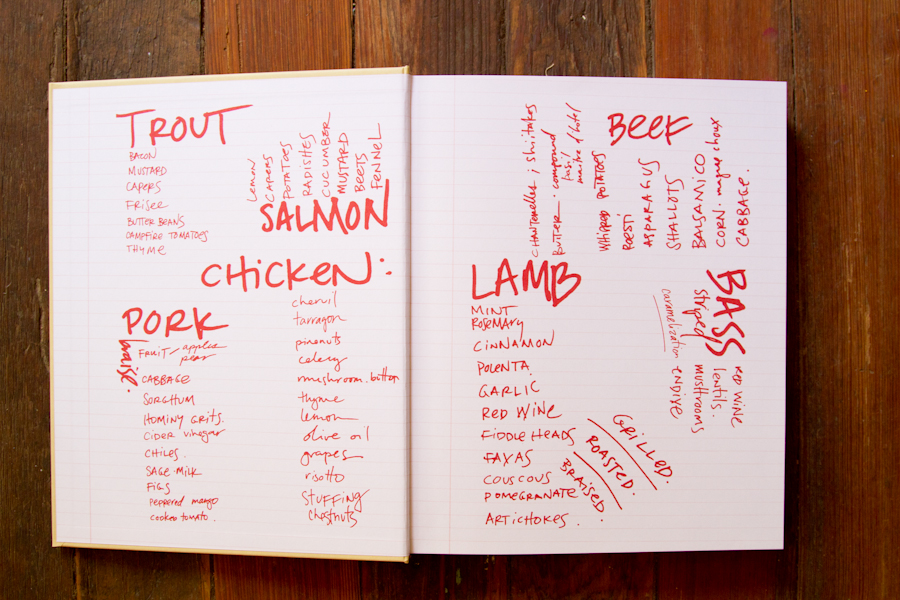 TROUT
BACON
MUSTARD
CAPERS
FRISEE
BUTTER BEANS
CAMPFIRE TOMATOES
THYME
LEMON
CAPERS
POTATOES
RADISHES
CUCUMBER
MUSTARD
BEETS
FENNEL
SALMON
CHICKEN:
chervil
tarragon
pinenuts
celery
mushroom. button
thyme
lemon
olive oil
grapes
risotto
STUFFING
Chestnuts
PORK
braise.
FRUIT/apples
pear
CABBAGE
SORGHUM
HOMINY GRITS.
CIDER vinegar
CHILES.
SAGE-MILK
FIGS
peppered mango
cooked tomato.
BEEF
CHANTERELLES ; shiitakes
BUTTER · compound
maitre d'hotel
WHIPPED POTATOES
ROESTI
ASPARAGUS
SHALLOTS
BALSAMICO
CORN. maque choux
CABBAGE.
LAMB
MINT
ROSEMARY
CINNAMON
POLENTA
GARLIC
RED WINE
FIDDLEHEADS
FAVAS
COUSCOUS
POMEGRANATE
ARTICHOKES.
GRILLED.
ROASTED.
BRAISED.
BASS
striped
caramelization
RED WINE
lentils.
MUSHROOMS
ENDIVE